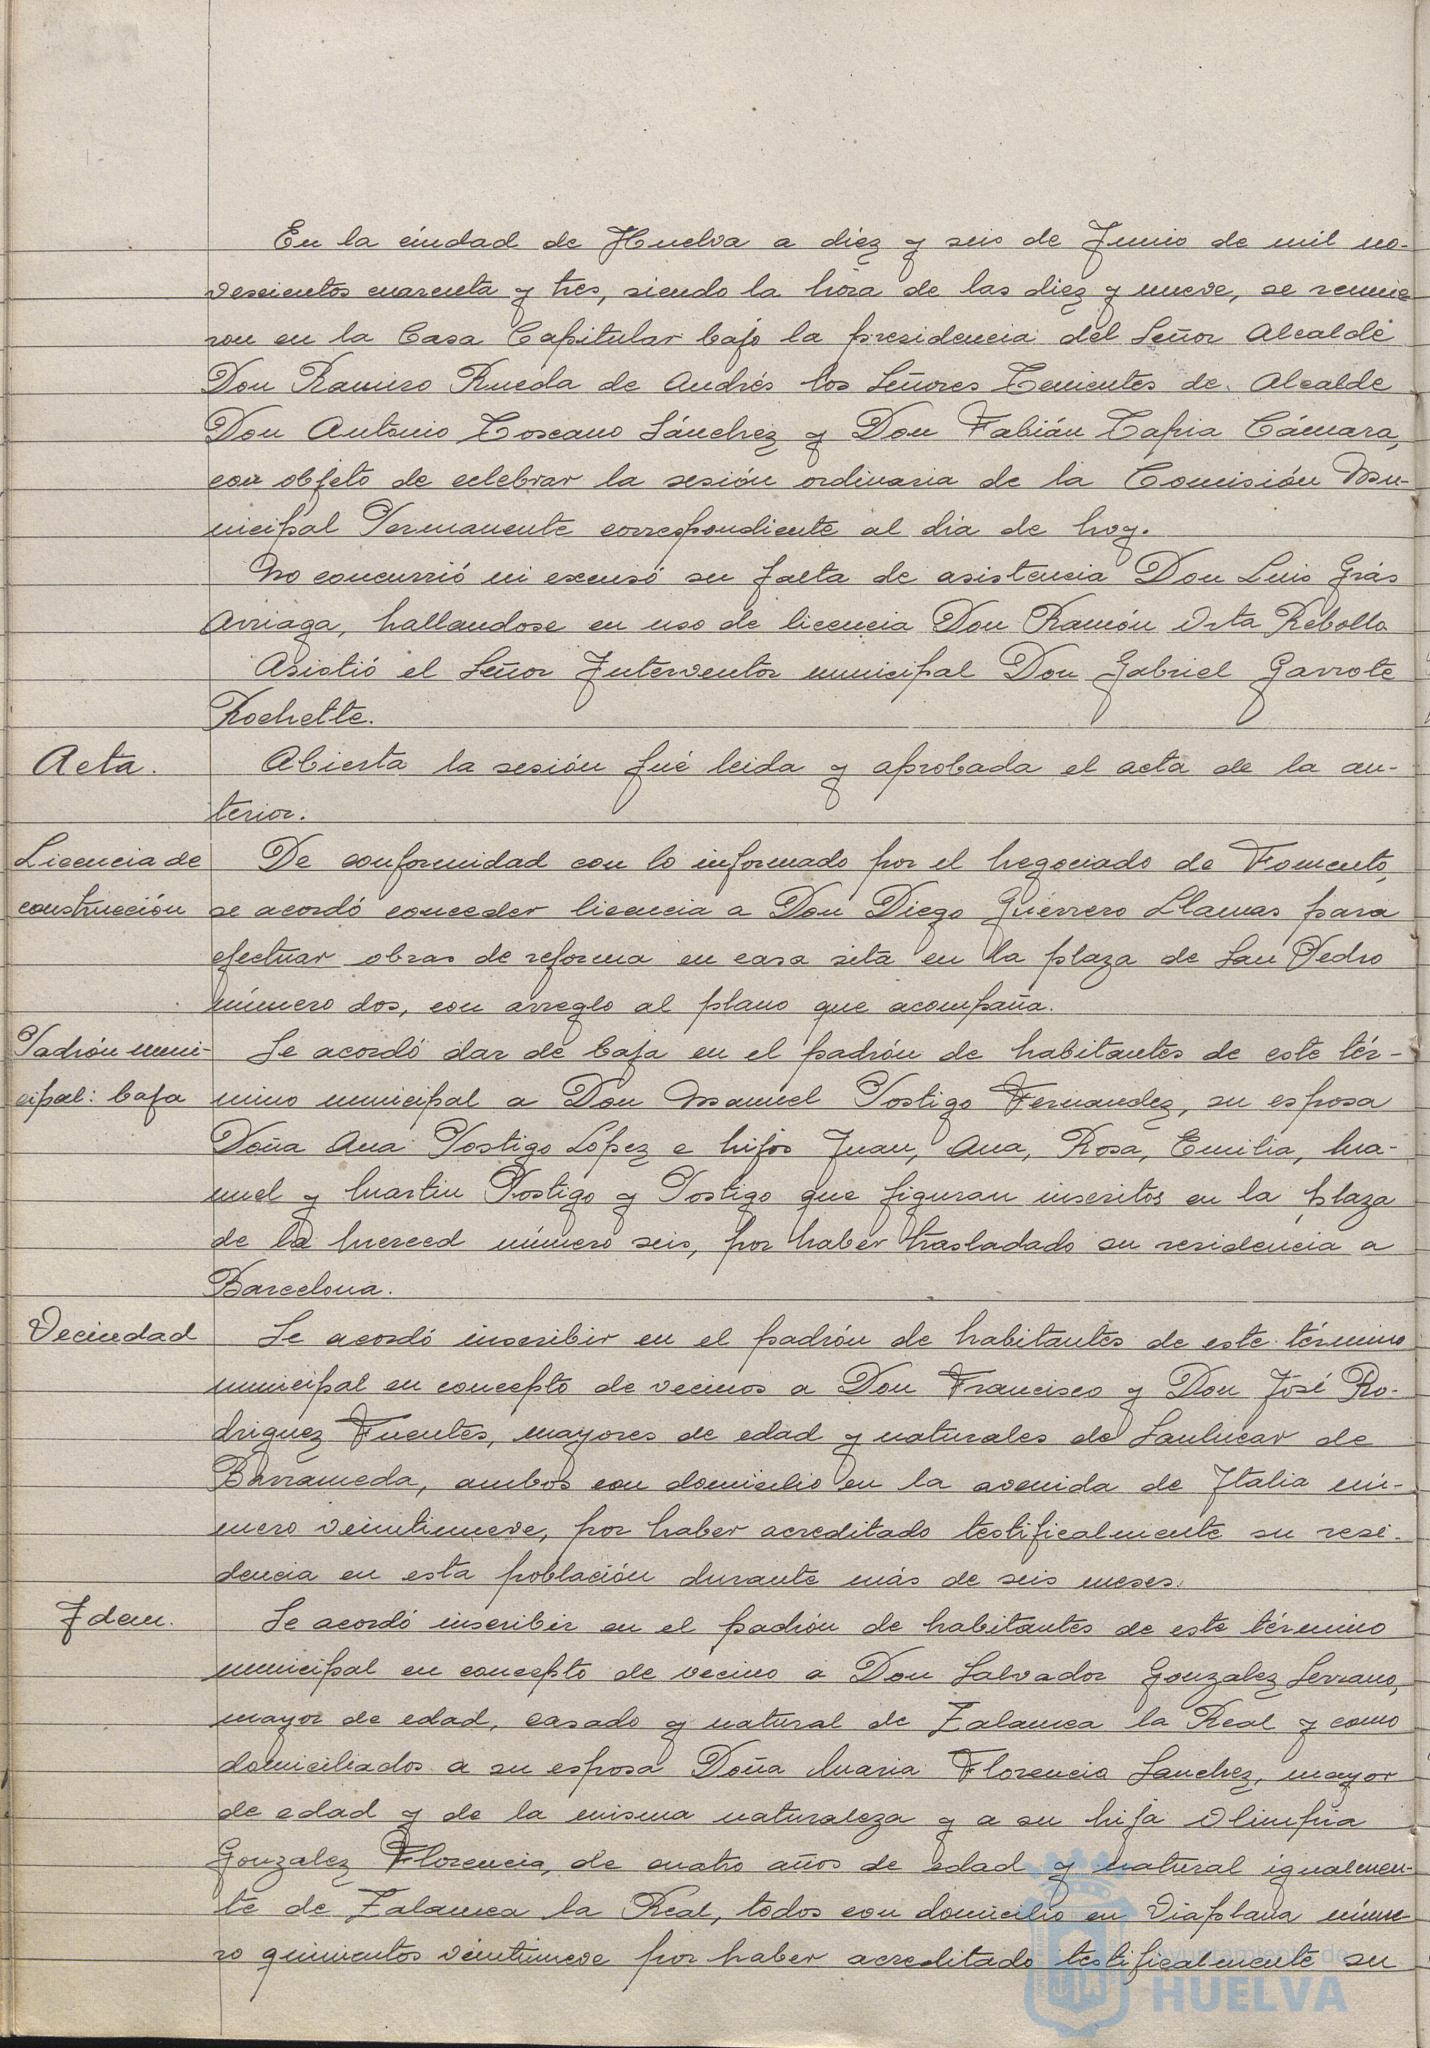 En la ciudad de Huelva a diez y seis de Junio de mil no-
vescientos cuarenta y tres, siendo la hora de las diez y nueve, se reunie
ron en la Casa Capitular bajo la presidencia del Señor Alcalde
Don Ramiro Rueda de Andrés los Señores Tenientes de Alcalde
Don Antonio Toscano Sánchez y Don Fabián Tapia Cámara,
con objeto de celebrar la sesión ordinaria de la Comisión Mu-
nicipal Permanente correspondiente al dia de hoy.
No concurrió ni excusó su falta de asistencia Don Luis Grás
Arriaga, hallandose en uso de licencia Don Ramón Orta Rebollo
Asistió el Señor Interventor municipal Don Gabriel Garrote
Rochette.
Acta.
Abierta la sesión fué leida y aprobada el acta de la an-
terior.
Licencia de
construcción
De conformidad con lo informado por el Negociado de Fomento,
se acordó conceder licencia a Don Diego Guerrero Llamas para
efectuar obras de reforma en casa sita en la plaza de San Pedro
número dos, con arreglo al plano que acompaña.
Padrón muni-
cipal: baja
Se acordó dar de baja en el padrón de habitantes de este tér-
mino municipal a Don Manuel Postigo Fernandez, su esposa
Doña Ana Postigo Lopez e hijos Juan, Ana, Rosa, Emilia, Ma-
nuel y Martin Postigo y Postigo que figuran inscritos en la plaza
de la Merced número seis, por haber trasladado su residencia a
Barcelona.
Vecindad
Se acordó inscribir en el padrón de habitantes de este término
municipal en concepto de vecinos a Don Francisco y Don José Ro-
driguez Fuentes, mayores de edad y naturales de Sanlucar de
Barrameda, ambos con domicilio en la avenida de Italia nú-
mero veintinueve, por haber acreditado testificalmente su resi-
dencia en esta población durante más de seis meses.
Idem.
Se acordó inscribir en el padrón de habitantes de este término
municipal en concepto de vecino a Don Salvador Gonzalez Serrano,
mayor de edad, casado y natural de Zalamea la Real y como
domiciliados a su esposa Doña Maria Florencio Sanchez, mayor
de edad y de la misma naturaleza y a su hija Olimpia
Gonzalez Florencio, de cuatro años de edad y natural igualmen-
te de Zalamea la Real, todos con domicilio en Viaplana núme-
ro quinientos veintinueve por haber acreditado testificalmente su
Ayuntamiento de
HUELVA